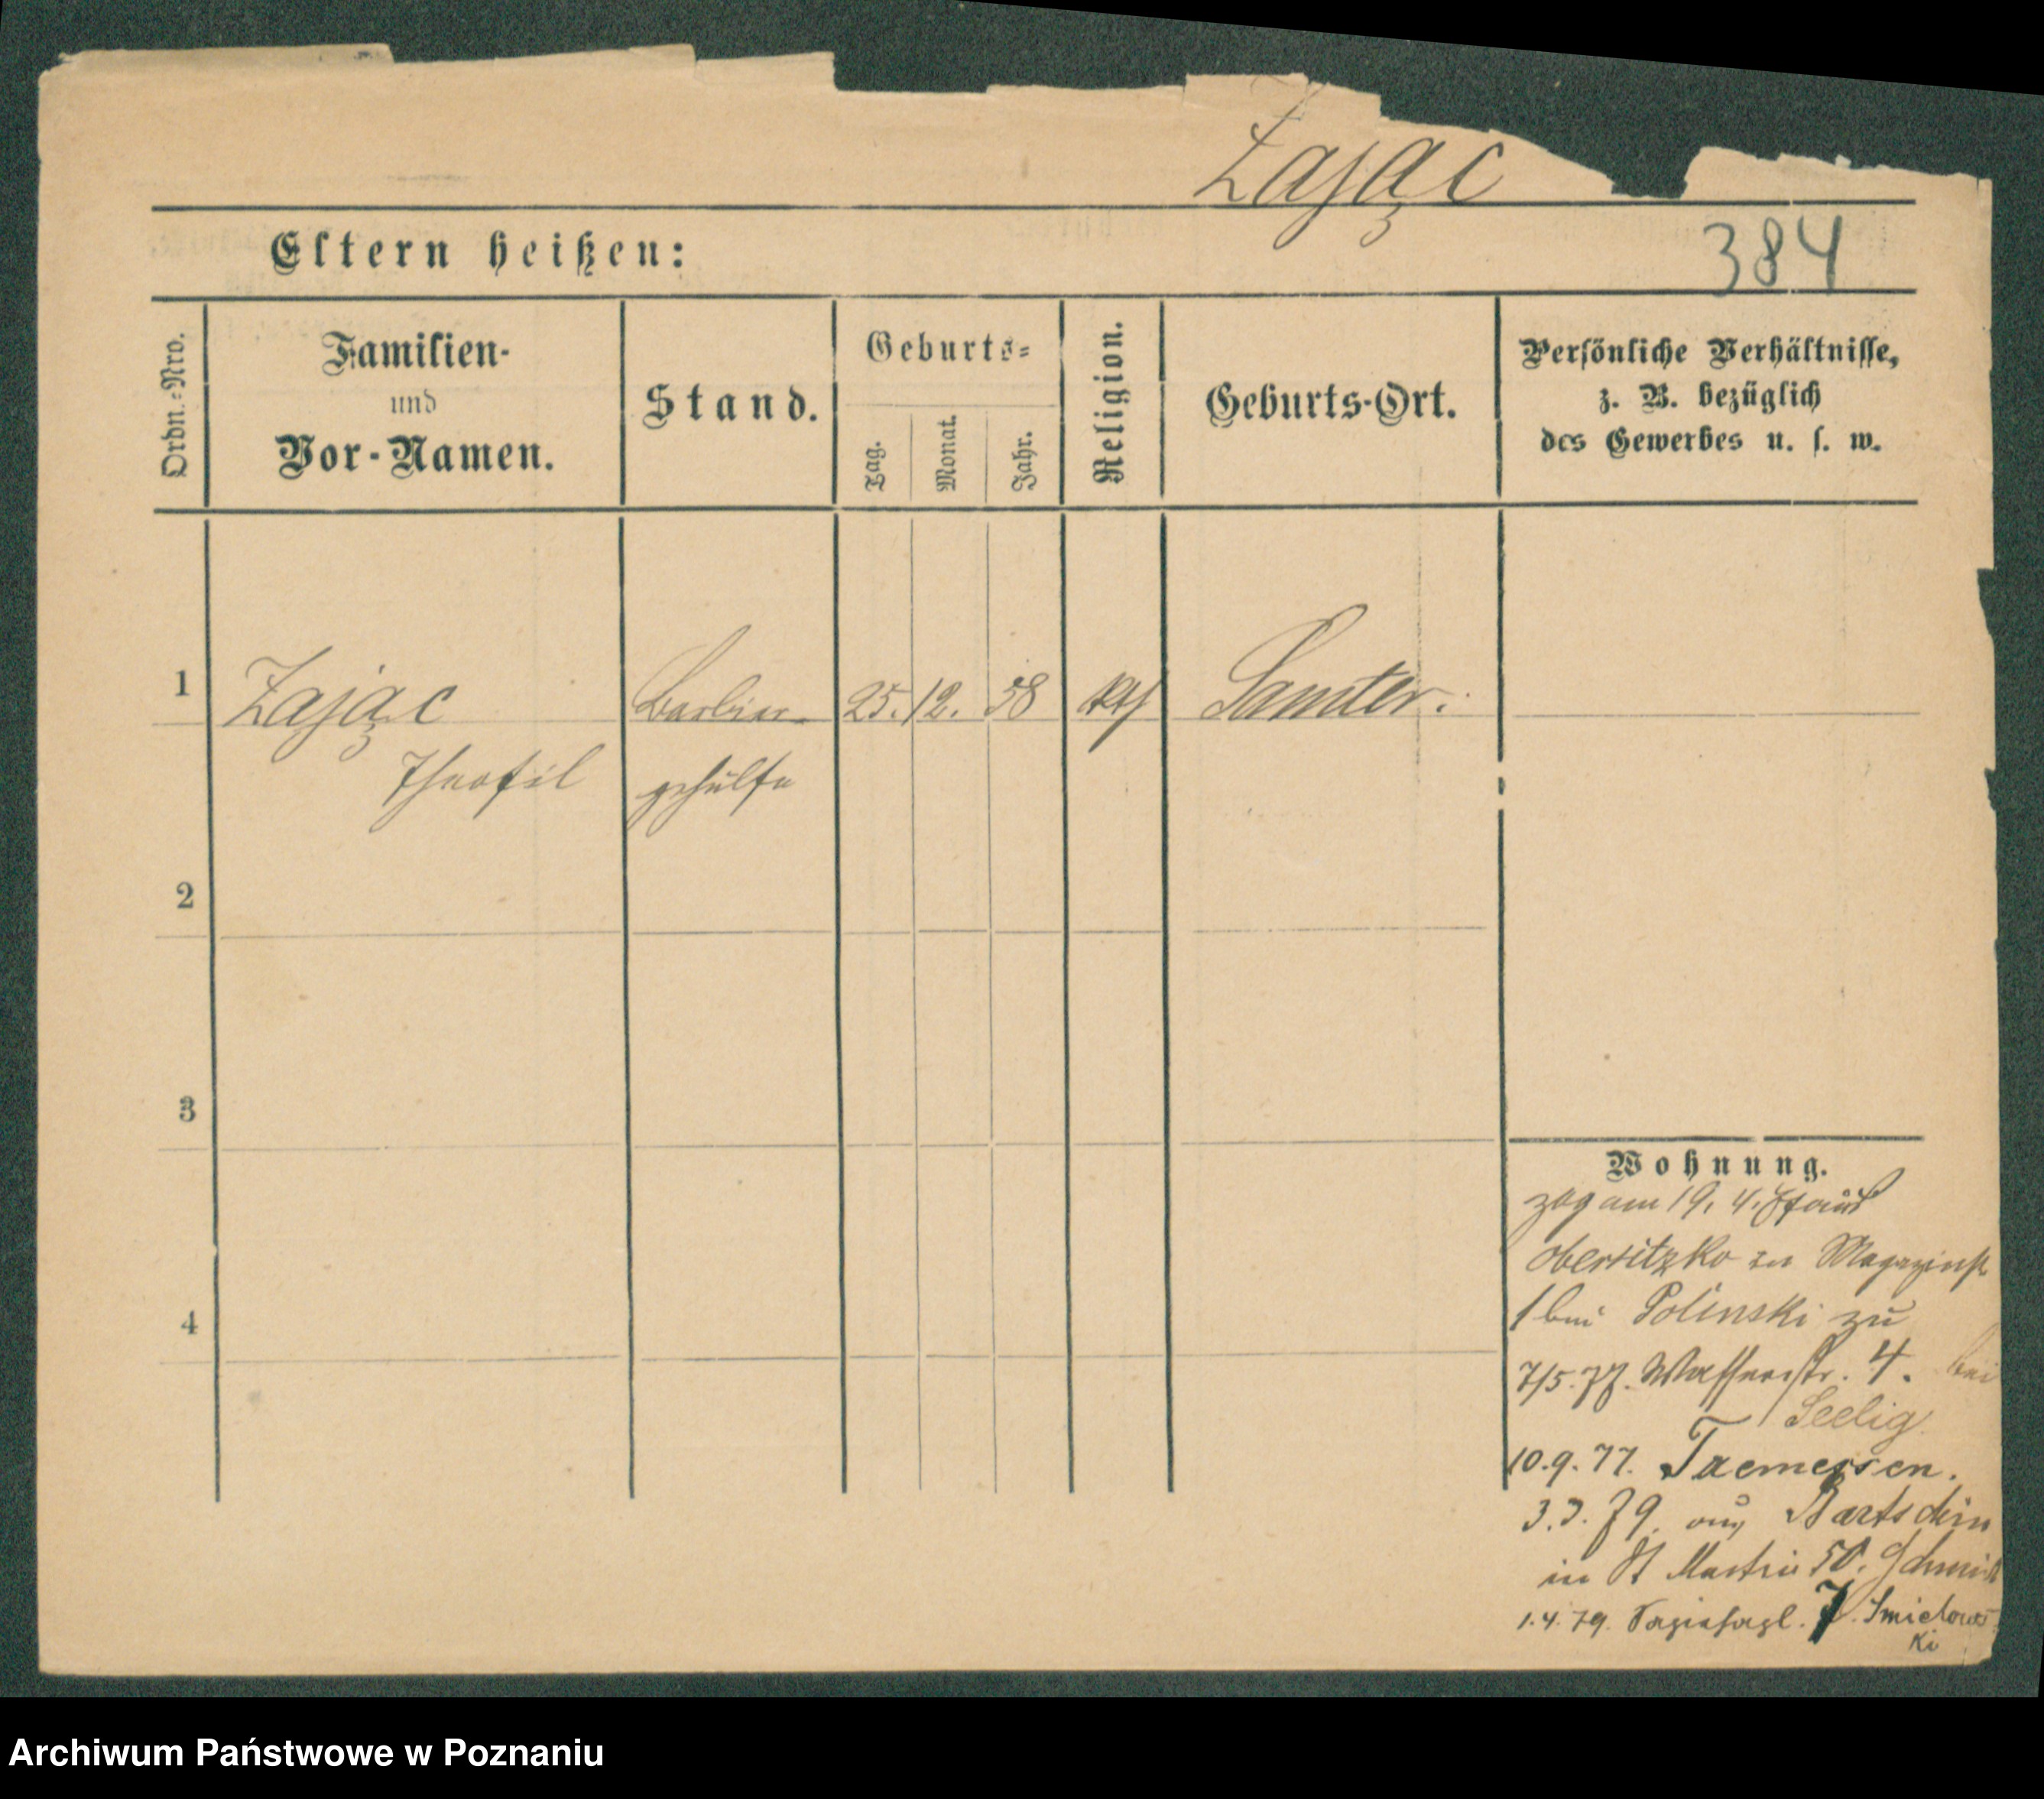 Zając
Eltern heißen:
384
Ordn.-Nro.
Familien-
und
Vor-Namen.
Stand.
Geburts-
Tag.
Monat.
Jahr.
Religion.
Geburts-Ort.
Persönliche Verhältnisse,
z. B. bezüglich
des Gewerbes u. s. w.
1
Zając
Barbier-
25.
12.
58
kth
Samter.
Theofil
gehülfe
2
3
4
Wohnung.
zog am 19. 4. 77 aus
Obersitzko in Magazinst
1 bei Polinski zu
7/5. 77. Wasserstr. 4. bei
Seelig
10.9.77. Tremessen.
3.3.79. aus Bartschin
in St Martin 50. Schmidt
1.4.79. 7. Smielows
ki
Archiwum Państwowe w Poznaniu